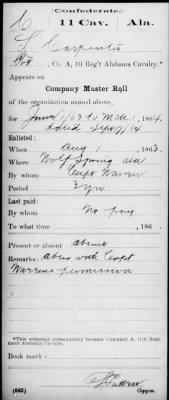 Confederate.
C 11 Cav. Ala.
C L Carpenter
Pvt, Co. A, 10 Reg't Alabama Cavalry.*
Appears on
Company Muster Roll
of the organization named above,
for June 1/63 to Mch 1, 1864.
dated Sept 1/64
Enlisted:
When Aug 1, 1863.
Where Wolf Spring Ala
By whom Capt Warren
Period 3 yrs
Last paid:
By whom No pay
To what time , 186 .
Present or absent absent
Remarks: Absent with Capt
Warrens permission
*This company subsequently became Company A, 11th Regiment Alabama Cavalry.
Book mark:
(642) Copyist.